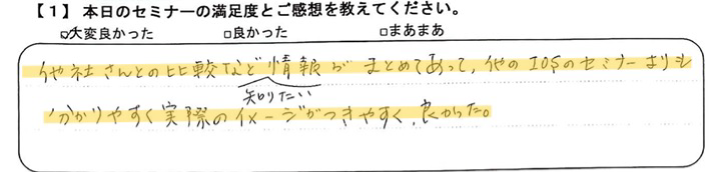 【1】本日のセミナーの満足度とご感想を教えてください。
☑大変良かった □良かった □まあまあ
他社さんとの比較など情報が まとめてあって、他のIOSのセミナーよりも
知りたい
分かりやすく実際のイメージがつきやすく、良かった。